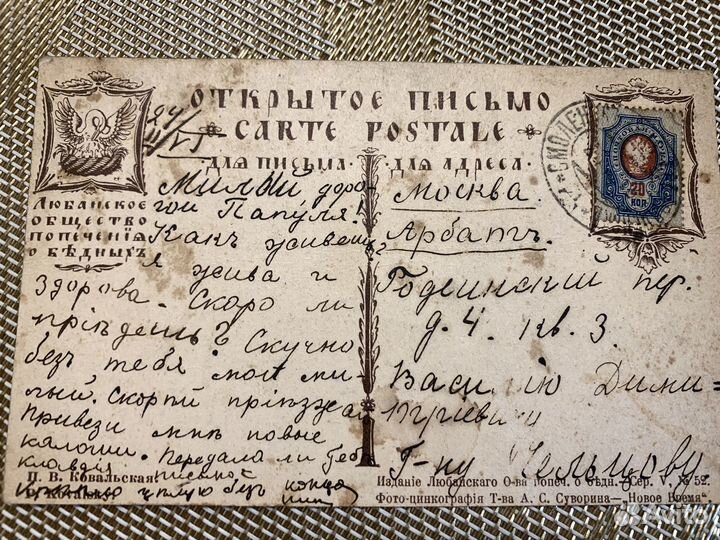 ОТКРЫТОЕ ПИСЬМО
CARTE POSTALE
ДЛЯ ПИСЬМА. ДЛЯ АДРЕСА.
ЛЮБАНСКОЕ
ОБЩЕСТВО
ПОПЕЧЕНІЯ
О БѢДНЫХЪ
24/
Милый доро-
гой Папуля!
Какъ живешь,
я жива и
здорова. Скоро ли
пріѣдешь? Скучно
безъ тебя мой ми-
лый. Скорѣй пріѣзжай
Привези мнѣ новые
калоши. Передала ли тебѣ
письмо
цѣлую безъ конца
Москва
Арбатъ.
пер.
д. 4. кв. 3.
Василію Дими-
тріевичу
Г-ну Чельцову
20
КОП
СМОЛЕН
П. В. Ковальская
Изданіе Любанскаго О-ва попеч. о бѣдн. Сер. V, № 52.
Фото-цинкографія Т-ва А. С. Суворина—„Новое Время“.
Avito